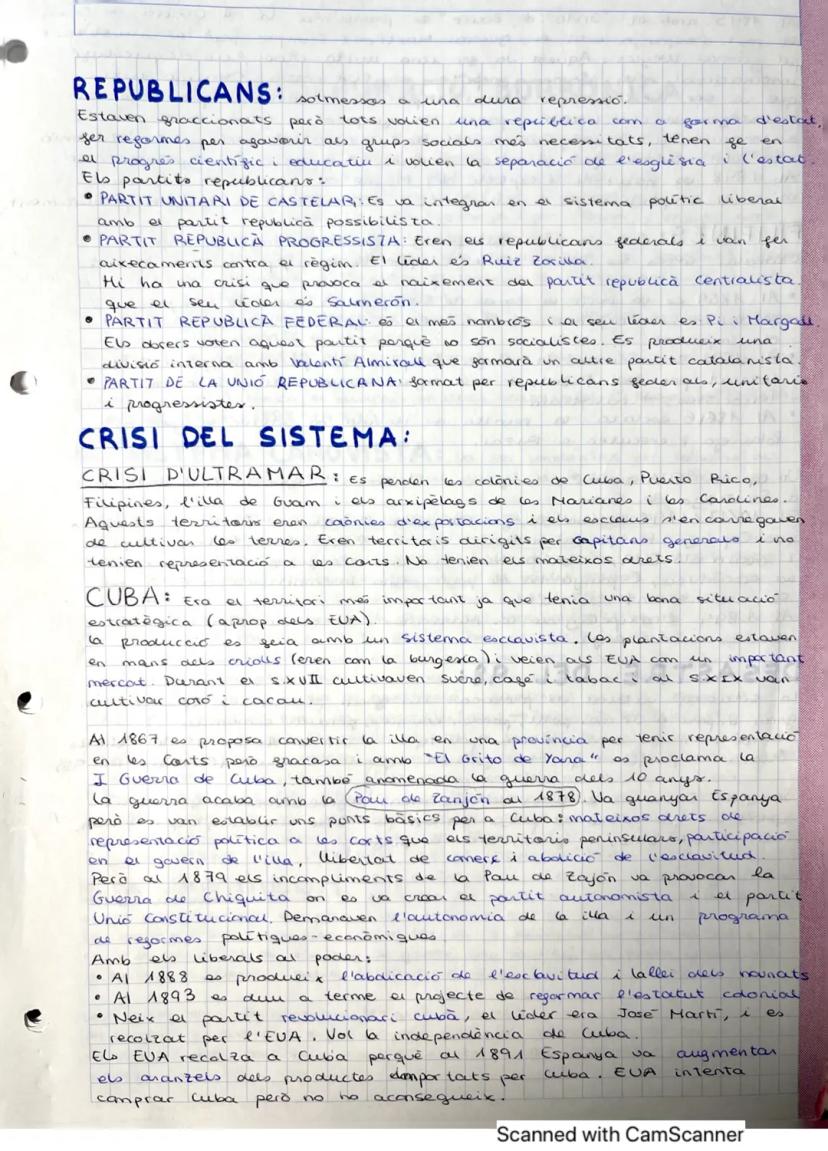 REPUBLICANS: solmessos a una dura repressió.
Estaven fraccionats però tots volien una república com a forma d'estat,
fer reformes per afavorir als grups socials més necessitats, tenen fe en
el progrés científic i educatiu i volien la separació de l'església i l'estat.
Els partits republicans:
• PARTIT UNITARI DE CASTELAR: Es va integrar en el sistema polític liberal
amb el partit republicà possibilista.
• PARTIT REPUBLICÀ PROGRESSISTA: Eren els republicans federals i van fer
aixecaments contra el règim. El líder és Ruiz Zorilla.
Hi ha una crisi que provoca el naixement del partit republicà centralista
que el seu líder és Salmerón.
• PARTIT REPUBLICÀ FEDERAL: és el més nombrós i el seu líder es Pi i Margall.
Els obrers voten aquest partit perquè no són socialistes. Es produeix una
divisió interna amb Valentí Almirall que formarà un altre partit catalanista.
• PARTIT DE LA UNIÓ REPUBLICANA: format per republicans federals, unitaris
i progressistes.
CRISI DEL SISTEMA:
CRISI D'ULTRAMAR: Es perden les colònies de Cuba, Puerto Rico,
Filipines, l'illa de Guam i els arxipèlags de les Marianes i les Carolines.
Aquests territoris eren colònies d'exportacions i els esclaus s'encarregaven
de cultivar les terres. Eren territoris dirigits per capitans generals i no
tenien representació a les Corts. No tenien els mateixos drets.
CUBA: Era el territori més important ja que tenia una bona situació
estratègica (aprop dels EUA).
La producció es feia amb un sistema esclavista. Les plantacions estaven
en mans dels criolls (eren com la burgesia) i veien als EUA com un important
mercat. Durant el s.XVII cultivaven sucre, cafè i tabac i al s.XIX van
cultivar cotó i cacau.
Al 1867 es proposa convertir la illa en una província per tenir representació
en les Corts però fracasa i amb "El Grito de Yara" es proclama la
I Guerra de Cuba, també anomenada la guerra dels 10 anys.
La guerra acaba amb la Pau de Zanjón al 1878. Va guanyar Espanya
però es van establir uns punts bàsics per a Cuba: mateixos drets de
representació política a les corts que els territoris peninsulars, participació
en el govern de l'illa, llibertat de comerç i abolició de l'esclavitud.
Però al 1879 els incompliments de la Pau de Zajón va provocar la
Guerra de Chiquita on es va crear el partit autonomista i el partit
Unió Constitucional. Demanaven l'autonomia de la illa i un programa
de reformes polítiques-econòmiques
Amb els liberals al poder:
• Al 1888 es produeix l'abdicació de l'esclavitud i la llei dels nounats
• Al 1893 es duu a terme el projecte de reformar l'estatut colonial
• Neix el partit revolucionari cubà, el líder era José Martí, i es
recolzat per l'EUA. Vol la independència de Cuba.
Els EUA recolza a Cuba perquè al 1891 Espanya va augmentar
els aranzels dels productes importats per Cuba. EUA intenta
comprar Cuba però no ho aconsegueix.
Scanned with CamScanner